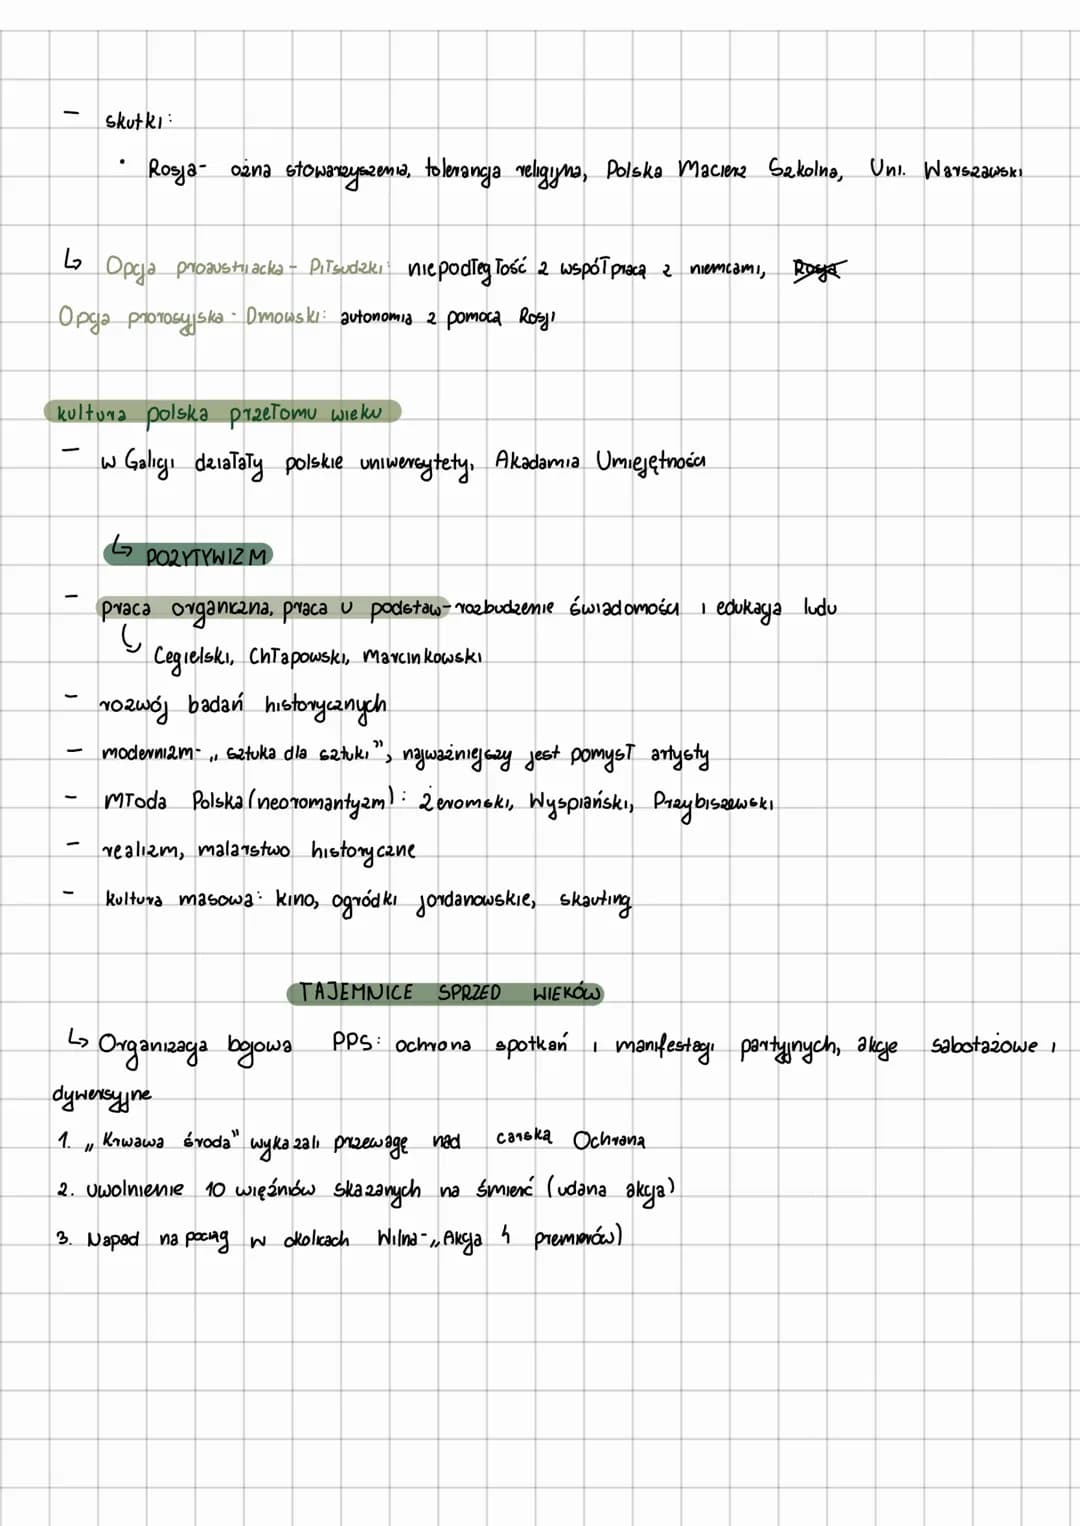 - skutki:
• Rosja- ożna stowarzyszenia, tolerancja religijna, Polska Macierz Szkolna, Uni. Warszawski
↳ Opcja proaustriacka - Piłsudzki: niepodległość z współpracą z niemcami, Rosja
Opcja prorosyjska - Dmowski: autonomia z pomocą Rosji
kultura polska przełomu wieku
- w Galicji działały polskie uniwersytety, Akadamia Umiejętności
↳ POZYTYWIZM
- praca organiczna, praca u podstaw- rozbudzenie świadomości i edukacja ludu
↳ Cegielski, Chłapowski, Marcinkowski
- rozwój badań historycznych
- modernizm- „sztuka dla sztuki”, najważniejszy jest pomysł artysty
- Młoda Polska (neoromantyzm): Żeromski, Wyspiański, Przybiszewski
- realizm, malarstwo historyczne
- kultura masowa: kino, ogródki jordanowskie, skauting
TAJEMNICE SPRZED WIEKÓW
↳ Organizacja bojowa PPS: ochrona spotkań i manifestacji partyjnych, akcje sabotażowe i
dywersyjne
1. „Krwawa środa” wykazali przewagę nad carską Ochraną
2. Uwolnienie 10 więźniów skazanych na śmierć (udana akcja)
3. Napad na pociąg w okolicach Wilna-„Akcja 4 premierów)